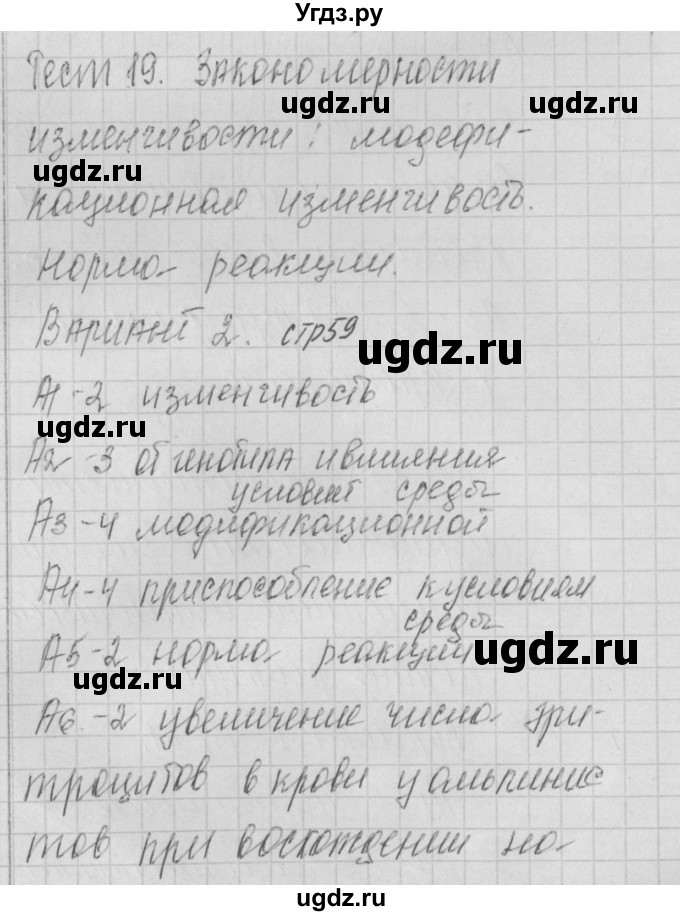 Угдз.ру
Тест 19. Закономерности
ugdz.ru ugdz.ru
изменчивости: модефи-
ugdz.ru
кационная изменчивость.
Норма реакции.
Вариант 2. стр59
ugdz.ru
А1-2 изменчивость
ugdz.ru
А2-3 от генотипа и влияния
условий среды
А3-4 модификационной
А4-4 приспособление к условиям
среды
А5-2 норма реакции
ugdz.ru
ugdz.ru
А6.-2 увеличение числа эри-
троцитов в крови у альпинис
тов при восхождении на
ugdz.ru